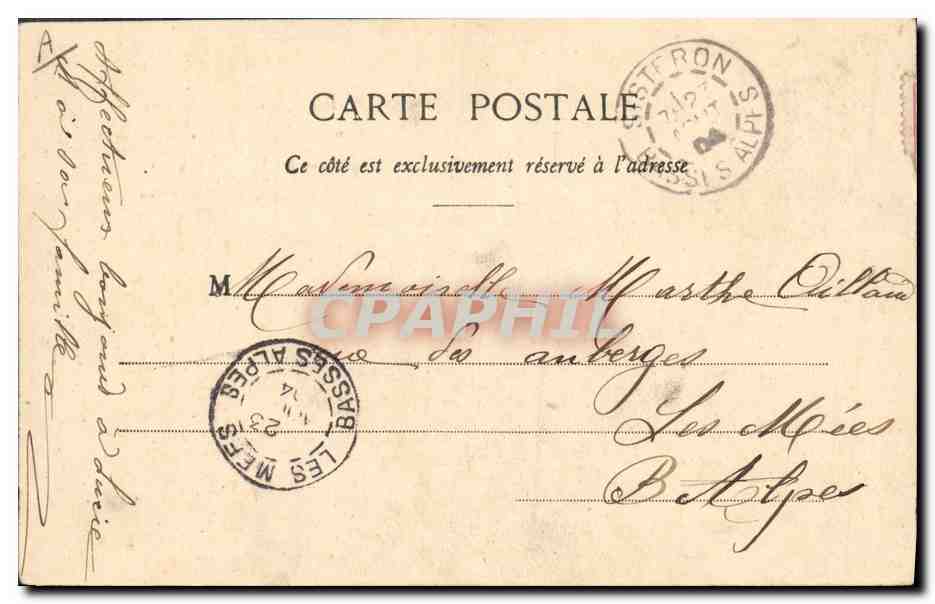 CARTE POSTALE
Ce côté est exclusivement réservé à l'adresse
SISTERON
BASSES ALPES
04
M Mademoiselle Marthe
rue des auberges
Les Mées
B Alpes
CPAPHIL
LES MEES
BASSES ALPES
23
04
Affectueux bonjour à Lucie
& à sa famille